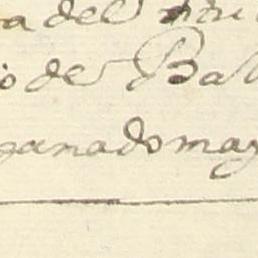 a del
o de Bal
ganado may